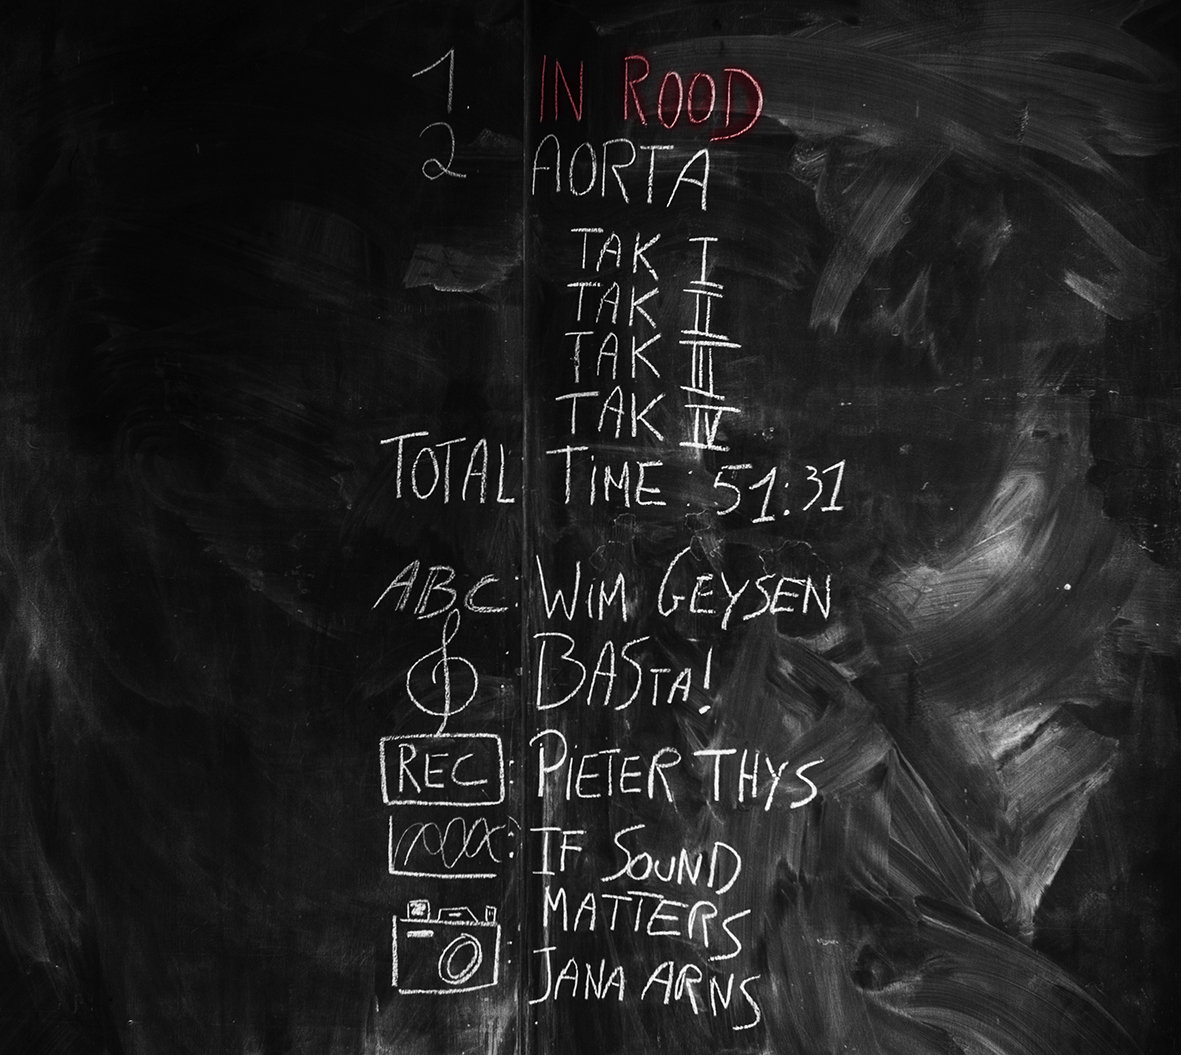 1. IN ROOD
2 AORTA
TAK I
TAK II
TAK III
TAK IV
TOTAL TIME : 51:31
ABC: WIM GEYSEN
: BASTA!
REC : PIETER THYS
: IF SOUND
MATTERS
: JANA ARNS